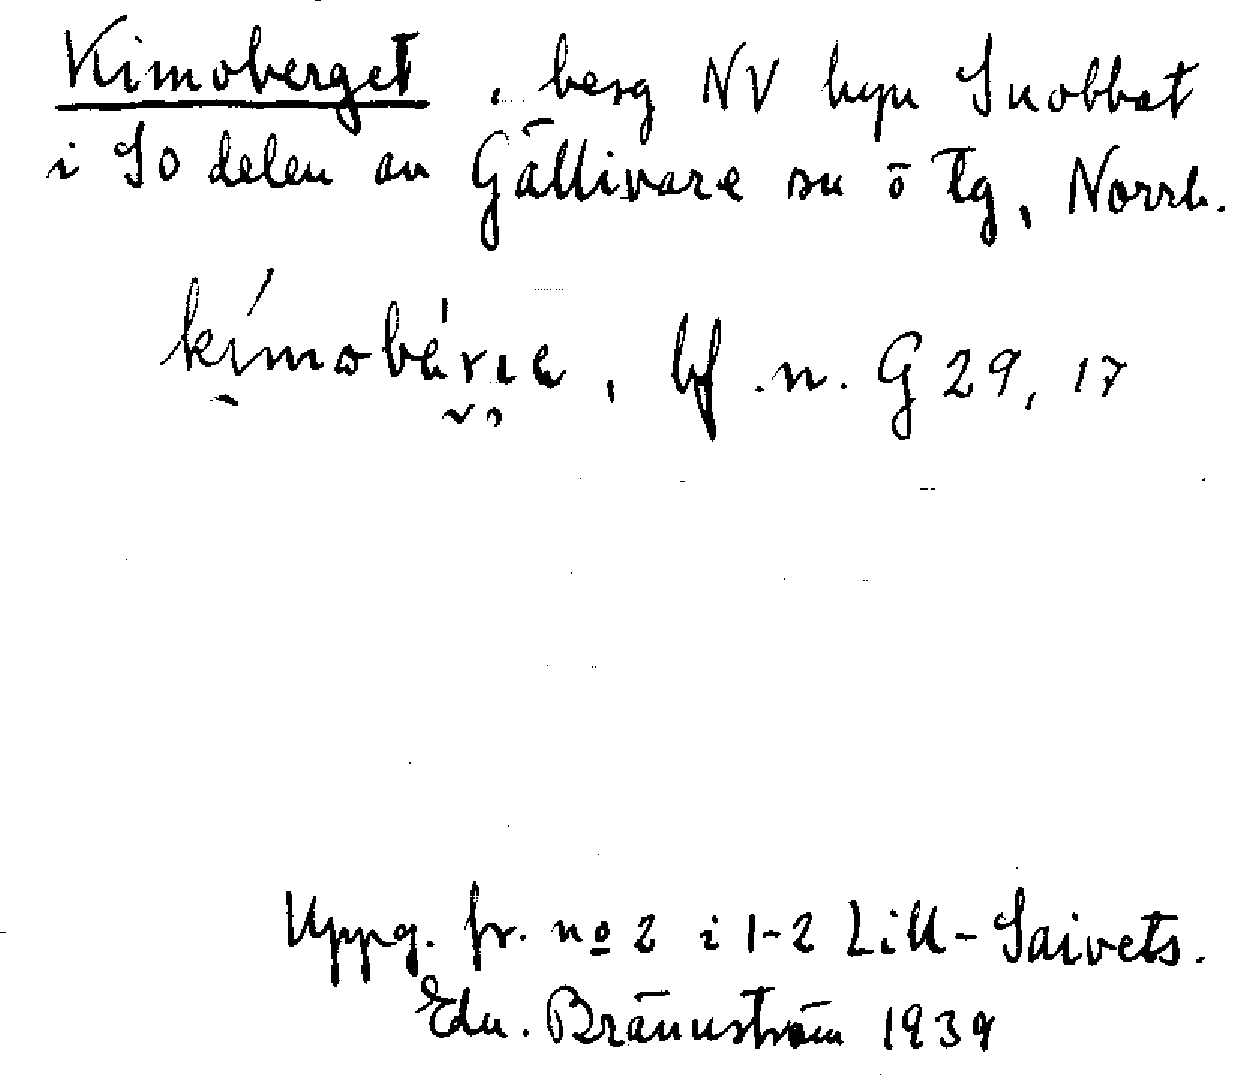 Kimoberget, berg NV byn Snobbat
i SO delen av Gällivare sn o tg, Norrb.
bf. n. G 29, 17
Uppg. fr. no 2 i 1-2 Lill-Saivets.
Edv. Brännström 1939